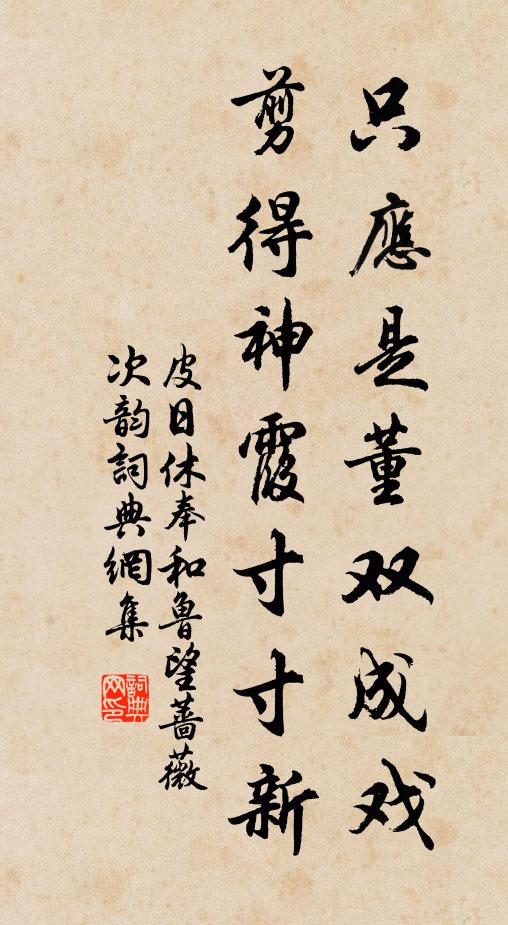 只應是董双成戏
剪得神霞寸寸新
皮日休奉和魯望蔷薇
次韵詞典網集
詞典
网印